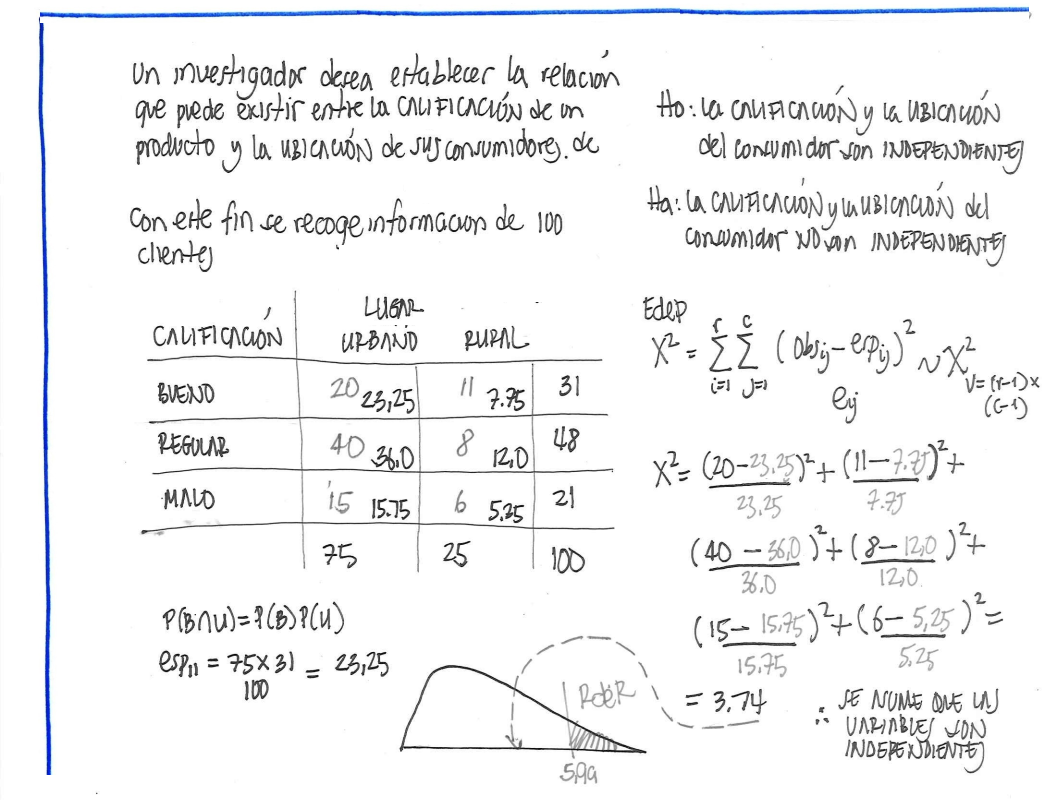 Un investigador desea establecer la relación
que puede existir entre la CALIFICACIÓN de un
producto y la UBICACIÓN de sus consumidores. de
Con este fin se recoge información de 100
clientes
LUGAR
CALIFICACIÓN URBANO RURAL
BUENO 20 23,25 11 7.75 31
REGULAR 40 36.0 8 12,0 48
MALO 15 15.75 6 5.25 21
75 25 100
P(B∩U)=P(B)P(U)
esp₁₁ = 75x31 = 23,25
100
Ho: La CALIFICACIÓN y la UBICACIÓN
del consumidor son INDEPENDIENTES
Ha: La CALIFICACIÓN y la UBICACIÓN del
consumidor NO son INDEPENDIENTES
EdeP
r c
X² = Σ Σ (Obsij - espij)² ~ X²
i=1 j=1 eij V=(r-1)x
(c-1)
X² = (20-23.25)² + (11-7.75)² +
23,25 7.75
(40 - 36,0)² + (8-12,0)² +
36.0 12,0.
(15-15.75)² + (6-5,25)² =
15.75 5.25
= 3.74
∴ SE ASUME QUE LAS
VARIABLES SON
INDEPENDIENTES
RdeR
5,99